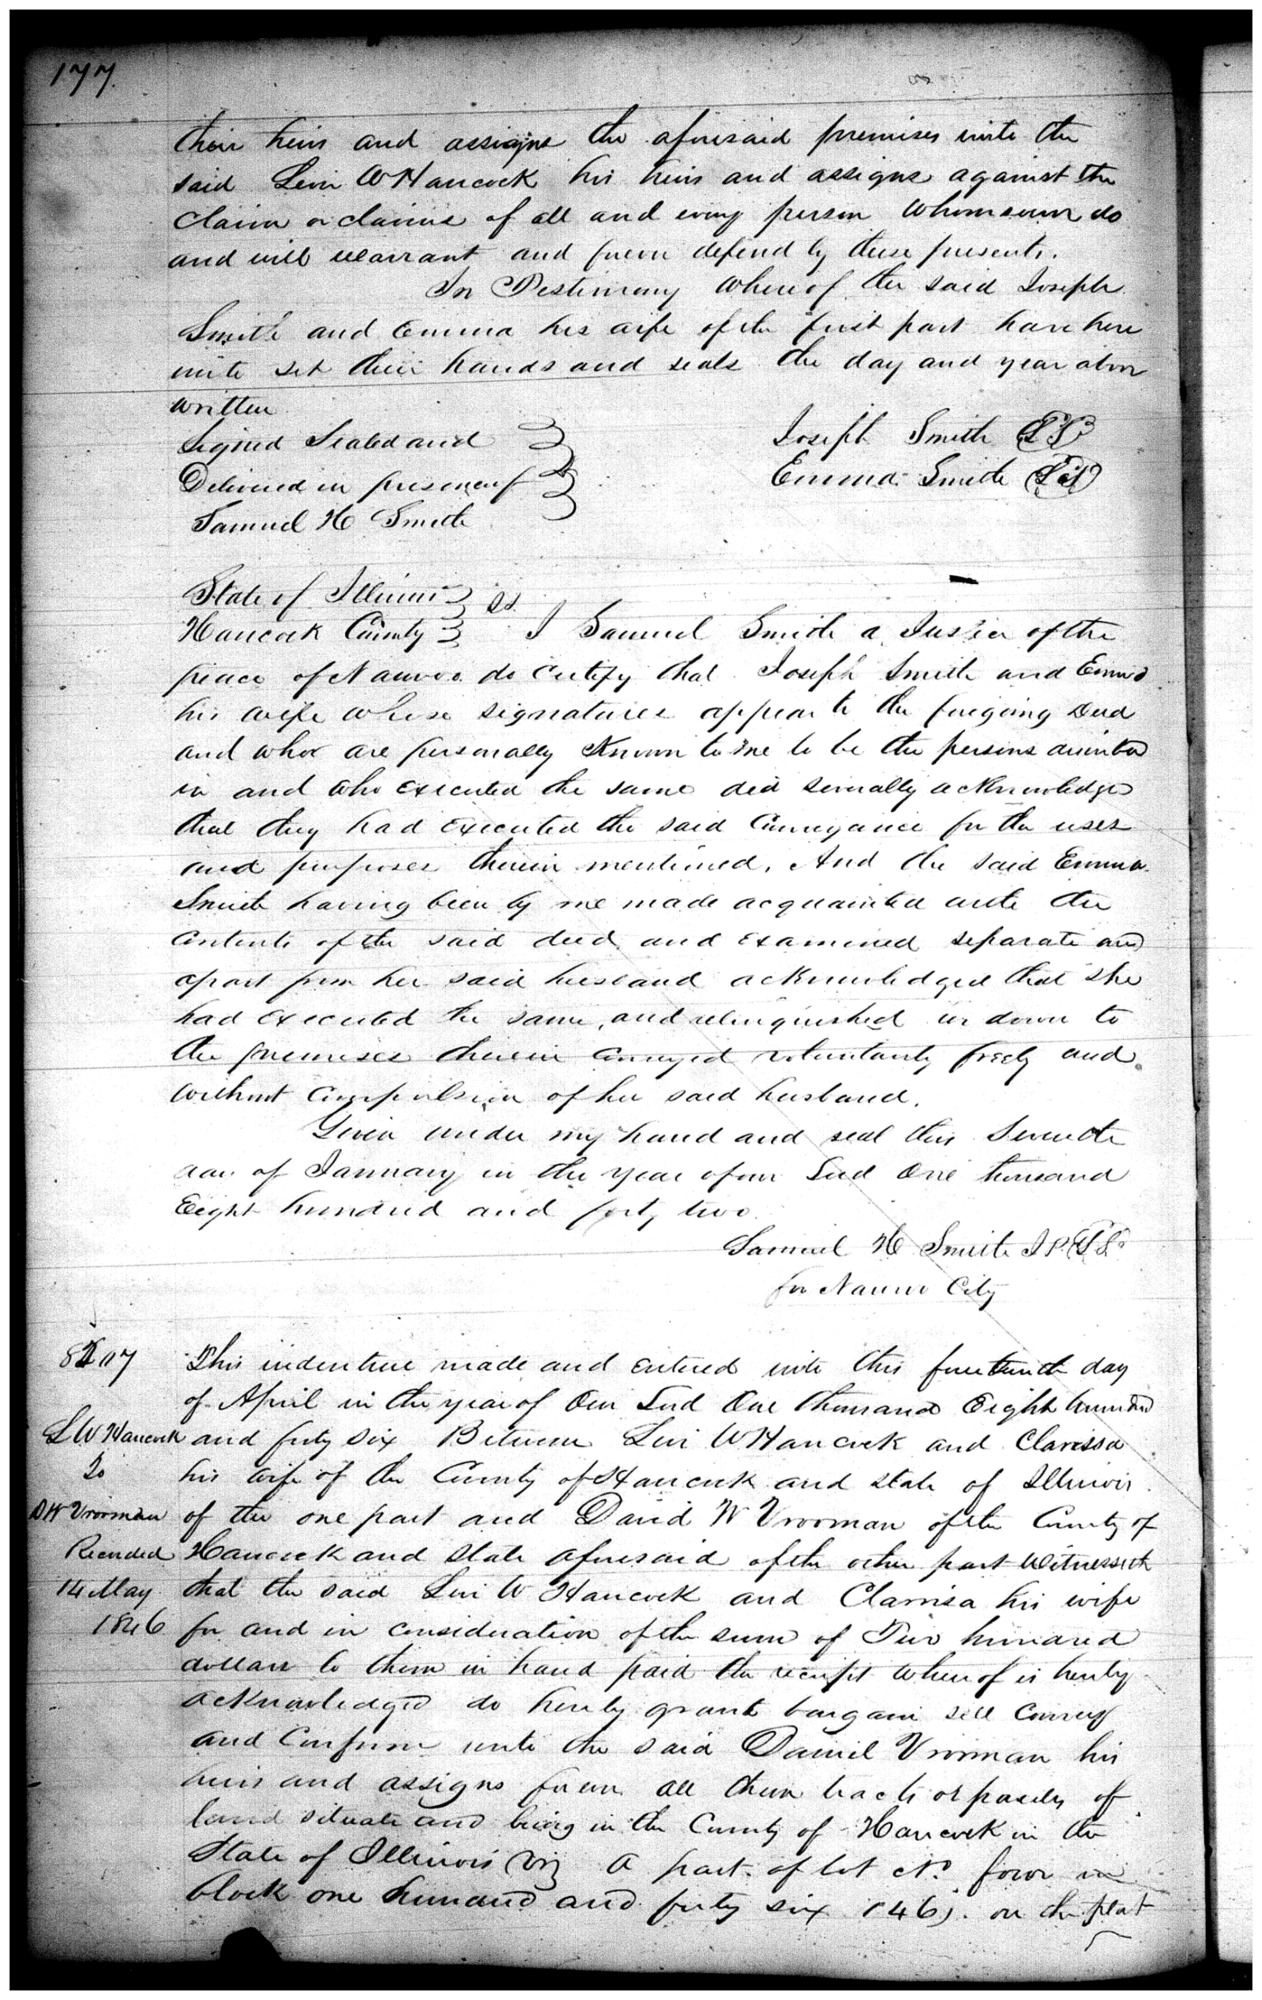 177.
their heirs and assigns the aforesaid premises unto the
said Levi W Hancock his heirs and assigns against the
claim or claims of all and every person whomsoever do
and will warrant and forever defend by these presents.
In Testimony whereof the said Joseph
Smith and Emma his wife of the first part have here
unto set their hands and seals the day and year above
written
Signed Sealed and
Delivered in presence of
Samuel H Smith
Joseph Smith
Emma Smith
State of Illinois } ss.
Hancock County } I Samuel Smith a Justice of the
peace of Nauvoo do certify that Joseph Smith and Emma
his wife whose signatures appear to the foregoing Deed
and who are personally Known to me to be the persons
in and who executed the same did severally acknowledge
that they had executed the said Conveyance for the uses
and purposes therein mentioned. And the said Emma
Smith having been by me made acquainted with the
contents of the said deed and examined separate and
apart from her said husband acknowledged that she
had executed the same, and relinquished dower to
the premises therein conveyed voluntarily freely and
without compulsion of her said husband.
Given under my hand and seal this Seventh
day of January in the year of our Lord One thousand
Eight hundred and forty two
Samuel H Smith J.P.
for Nauvoo City
L W Hancock
To
D W Vrooman
Recorded
14 May
1846
This indenture made and entered into this fourteenth day
of April in the year of Our Lord One thousand Eight hundred
and forty six Between Levi W Hancock and Clarissa
his wife of the County of Hancock and state of Illinois
of the one part and David W Vrooman of the County of
Hancock and State aforesaid of the other part Witnesseth
that the said Levi W Hancock and Clarrisa his wife
for and in consideration of the sum of Two hundred
dollars to them in hand paid the receipt whereof is hereby
acknowledged do hereby grant bargain sell convey
and Confirm unto the said Daniel Vrooman his
heirs and assigns forever all them tracts or parcels of
land situate and being in the County of Hancock in the
State of Illinois Viz A part of lot No. four in
block one hundred and forty six 146). on the plat